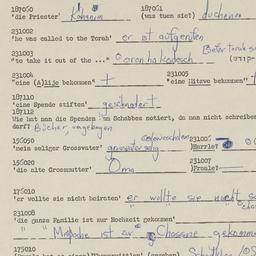 187060 187061
'die Priester' Kohanim (was tuen sie?) duchenen
231002
'he was called to the Torah' er ist aufgerufen
231003
"to take it out of the ..." Oron hakodesch
231004 231005
"eine (A)lije bekommen" + "eine Mitzve bekommen"
187110
'eine Spende stiften' geschnodert
187112
Wie hat man die Spenden am Schabbes notiert, da man nicht schreiben
darf? Bücher umgebogen
156050 231006
'mein seliger Grossvater' grossvater selig )Harrle(
156020 231007
'die alte Grossmutter' Oma )Fraale(
175010
'er wollte sie nicht heiraten' er wollte sie nicht
231008
'die ganze Familie ist zur Hochzeit gekommen'
" " Mischpoche ist zur Chassne gekommen
175010